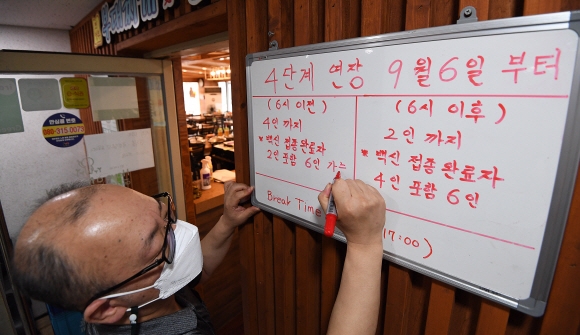 4단계 연장 9월6일 부터
(6시 이전)
4인 까지
* 백신 접종완료자
2인 포함 6인 가는
(6시 이후)
2인 까지
* 백신 접종 완료자
4인 포함 6인
Break Time
17:00)
안심콜
반드시